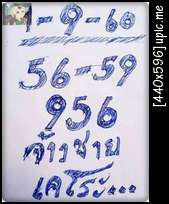 1-9-60
56-59
956
จ้างชาย
เคโระ...
[440x596] upic.me